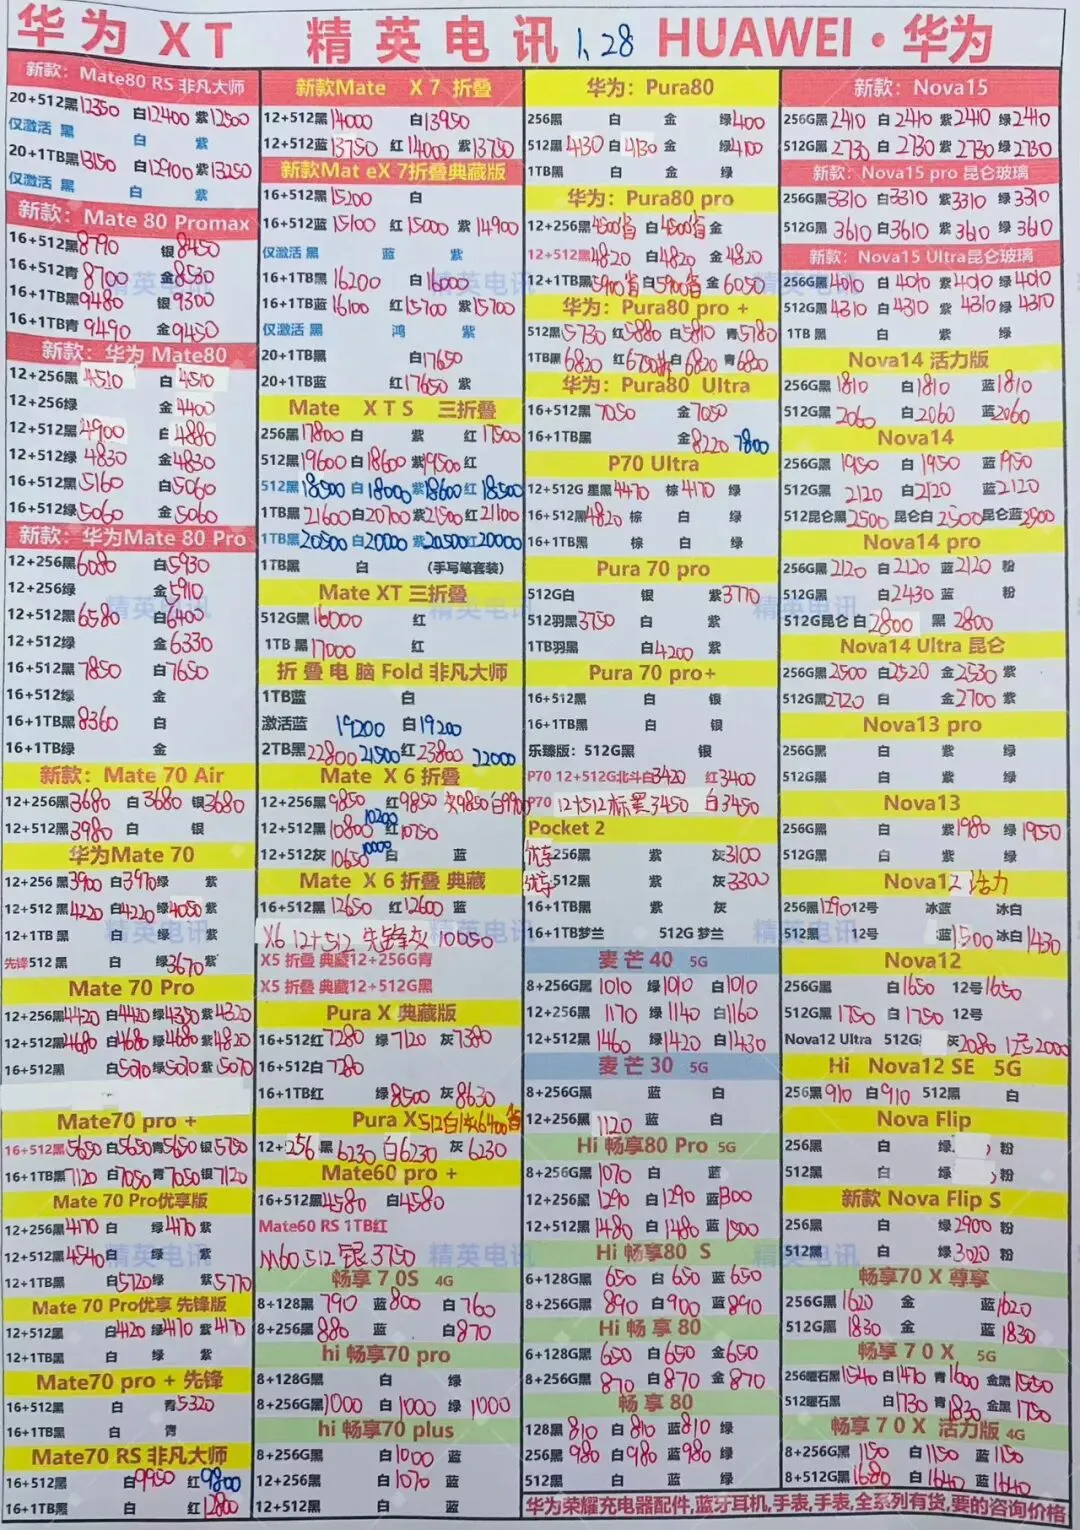 华为 XT 精英电讯 1.28 HUAWEI·华为
新款：Mate80 RS 非凡大师
20+512黑12350 白12400 紫12500
仅激活 黑 白 紫
20+1TB黑13150 白12900 紫13250
仅激活 黑 白 紫
新款：Mate 80 Promax
16+512黑8790 银8450
16+512青8700 金8530
16+1TB黑9480 银9300
16+1TB青9490 金9450
新款：华为 Mate80
12+256黑4510 白4510
12+256绿 金4400
12+512黑4900 白4880
12+512绿4830 金4830
16+512黑5160 白5060
16+512绿5060 金5060
新款：华为Mate 80 Pro
12+256黑6080 白5930
12+256绿 金5910
12+512黑6580 白6400
12+512绿 金6330
16+512黑7850 白7650
16+512绿 金
16+1TB黑8360 白
16+1TB绿 金
新款：Mate 70 Air
12+256黑3680 白3680 银3680
12+512黑3980 白 银
华为Mate 70
12+256黑3900 白3970绿 紫
12+512黑4220 白4220 绿4050紫
12+1TB黑 白 绿 紫
先锋512黑 白 绿3670紫
Mate 70 Pro
12+256黑4420 白4420绿4350紫4320
12+512黑4680 白4680绿4680紫4820
16+512黑 白5070绿5070紫5070
Mate70 pro +
16+512黑5650白5650青5650银5750
16+1TB黑7120白7050青7050银7120
Mate 70 Pro优享版
12+256黑4170白 绿4170紫
12+512黑4540白 绿 紫
12+1TB黑 白5720绿 紫5770
Mate 70 Pro优享 先锋版
12+512黑 白4120绿4170紫4170
12+1TB黑 白 绿 紫
Mate70 pro + 先锋
16+512黑 白 青5320
16+1TB黑 白 青
Mate70 RS 非凡大师
16+512黑 白9950 红9800
16+1TB黑 白 红12800
新款Mate X 7 折叠
12+512黑14000 白13950
12+512蓝13750 红14000 紫13750
新款Mat eX 7折叠典藏版
16+512黑15200 白
16+512蓝15100 红15000 紫14900
仅激活 黑 蓝 紫
16+1TB黑16200 白16000
16+1TB蓝16100 红15700 紫15700
仅激活 黑 鸿 紫
20+1TB黑 白17650
20+1TB蓝 红17650 紫
Mate X T S 三折叠
256黑17800 白 紫 红17500
512黑19600 白18600 紫19500红
512黑18500 白18000紫18600红18500
1TB黑21600白20700紫21500红21100
1TB黑20500白20000紫20500红20000
1TB黑 白 (手写笔套装)
Mate XT 三折叠
512G黑16000 红
1TB黑17000 红
折叠电脑 Fold 非凡大师
1TB蓝 白
激活蓝 19200 白19200
2TB黑22800 21500红23800 22000
Mate X 6 折叠
12+256黑9850 红9850 灰9850白9900
12+512黑10800 10200 红10750
12+512灰10650 10000 白 蓝
Mate X 6 折叠 典藏
16+512黑12650 红12600 蓝
X6 12+512 先锋灰 10050
X5 折叠 典藏12+256G青
X5 折叠 典藏12+512G黑
Pura X 典藏版
16+512红7280 绿7120 灰7380
16+512白7280
16+1TB红 绿8500 灰8630
Pura X512白灰6400省
12+256黑6230 白6230 灰6230
Mate60 pro +
16+512黑4580 白4580
Mate60 RS 1TB红
M60.512 银3750
畅享 7 0S 4G
8+128黑790 蓝800 白760
8+256黑880 蓝 白870
hi 畅享70 pro
8+128G黑 白 绿
8+256G黑1000 白1000 绿1000
hi 畅享70 plus
8+256G黑 白1000 蓝
12+256黑 白1070 蓝
12+512黑 白 蓝
华为：Pura80
256黑 白 金 绿400
512黑4130 白4130 金 绿4100
1TB黑 白 金 绿
华为：Pura80 pro
12+256黑4500省 白4500省金
12+512黑4820 白4820 金4820
12+1TB黑5900省白5900省金6050
华为：Pura80 pro +
512黑5730 红5880白5810 青5780
1TB黑6820 红6750 白6820 青6820
华为：Pura80 Ultra
16+512黑7050 金7050
16+1TB黑 金8220 7800
P70 Ultra
12+512G 星黑4470 棕4170 绿
16+512黑4820 棕 白 绿
16+1TB黑 棕 白 绿
Pura 70 pro
512G白 银 紫3770
512羽黑3750 白 紫
1TB羽黑 白4200 紫
Pura 70 pro+
16+512黑 白 银
16+1TB黑 白 银
乐臻版：512G黑 银
P70 12+512G北斗白3420 红3400
P70 12+512标黑3450 白3450
Pocket 2
优享256黑 紫 灰3100
优享512黑 紫 灰3300
16+1TB黑 紫 灰
16+1TB梦兰 512G 梦兰
麦芒 40 5G
8+256G黑1010 绿1010 白1010
12+256黑1170 绿1140 白1160
12+512黑1460 绿1420 白1430
麦芒 30 5G
8+256G黑 蓝 白
12+256黑1120 蓝 白
Hi 畅享80 Pro 5G
8+256G黑1070 白 蓝
12+256黑1290 白1290 蓝1300
12+512黑1480 白1480 蓝1500
Hi 畅享80 S
6+128G黑650 白650 蓝650
8+256G黑890 白900 蓝890
Hi 畅 享 80
6+128G黑650 白650 金650
8+256G黑870 白870 金870
畅 享 80
128黑810 白810 蓝810 绿
256黑980 白980 蓝980 绿
512黑 白 蓝 绿
新款：Nova15
256G黑2410 白2410 紫2410 绿2410
512G黑2730 白2730 紫2730 绿2730
新款：Nova15 pro 昆仑玻璃
256G黑3310 白3310 紫3310 绿3310
512G黑3610 白3610 紫3610 绿3610
新款：Nova15 Ultra昆仑玻璃
256G黑4010 白4010 紫4010 绿4010
512G黑4310 白4310 紫4310 绿4310
1TB 黑 白 紫 绿
Nova14 活力版
256G黑1810 白1810 蓝1810
512G黑2060 白2060 蓝2060
Nova14
256G黑1950 白1950 蓝1950
512G黑2120 白2120 蓝2120
512昆仑黑2500 昆仑白2500昆仑蓝2500
Nova14 pro
256G黑2120 白2120 蓝2120 粉
512G黑 白2430 蓝 粉
512G昆仑 白2800 黑2800
Nova14 Ultra 昆仑
256G黑2500 白2520 金2530 紫
512G黑2720 白 金2700 紫
Nova13 pro
256G黑 白 紫 绿
512G黑 白 紫 绿
Nova13
256G黑 白 紫1980 绿1950
512G黑 白 紫 绿
Nova12 活力
256黑1290 12号 冰蓝 冰白
512黑 12号 蓝1500 冰白1430
Nova12
256G黑 白1650 12号1650
512G黑1750 白1750 12号
Nova12 Ultra 512G 灰2080 12号2000
Hi Nova12 SE 5G
256黑910 白910 512黑 白
Nova Flip
256黑 白 绿 粉
512黑 白 绿 粉
新款 Nova Flip S
256黑 白 绿2900 粉
512黑 白 绿3020 粉
畅享70 X 尊享
256G黑1620 金 蓝1620
512G黑1830 金 蓝1830
畅享 7 0 X 5G
256曜石黑1540 白1470 青1600 金黑1550
512曜石黑 白1730 青1830 金黑1750
畅享 7 0 X 活力版 4G
8+256G黑1150 白1150 蓝1150
8+512G黑1680 白1640 蓝1640
华为荣耀充电器配件,蓝牙耳机,手表,手表,全系列有货,要的咨询价格